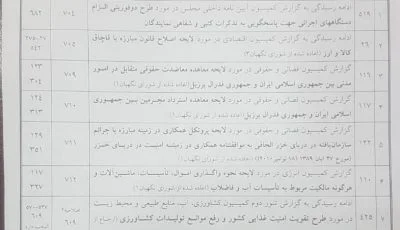 ادامه رسیدگی به گزارش کمیسیون آیین نامه داخلی مجلس در مورد طرح دوفوریتی الزام
۱ ۵۱۹ دستگاههای اجرائی جهت پاسخگویی به تذکرات کتبی و شفاهی نمایندگان ۷۰۴ ۶۸۲
ادامه رسیدگی به گزارش کمیسیون اقتصادی در مورد لایحه اصلاح قانون مبارزه با قاچاق
۲ ۲۶ کالا و ارز (اعاده شده از شورای نگهبان۳) ۷۰۵ ۵۴۲
گزارش کمیسیون قضائی و حقوقی در مورد لایحه معاهده معاضدت حقوقی متقابل در امور
۳ ۱۱۶ مدنی بین جمهوری اسلامی ایران و جمهوری فدرال برزیل (اعاده شده از شورای نگهبان) ۷۰۹ ۱۲۳ ۳۰۴
گزارش کمیسیون قضائی و حقوقی در مورد لایحه معاهده استرداد مجرمین بین جمهوری
۴ ۱۱۷ اسلامی ایران و جمهوری فدرال برزیل (اعاده شده از شورای نگهبان) ۷۱۰ ۱۲۴ ۳۱۳
گزارش کمیسیون قضائی و حقوقی در مورد لایحه پروتکل همکاری در زمینه مبارزه با جرائم
۵ ۱۳۲ سازمان‌یافته در دریای خزر الحاقی به موافقتنامه همکاری در زمینه امنیت در دریای خزر ۷۱۱ ۱۲۹ ۳۵۱
(اعاده شده از شورای نگهبان)
گزارش کمیسیون انرژی در مورد لایحه نحوه واگذاری اموال، تأسیسات، ماشین‌آلات و
۶ ۱۲۰ هرگونه مالکیت مربوط به تأسیسات آب و فاضلاب (اعاده شده از شورای نگهبان) ۷۱۲ ۱۱۷ ۳۲۷
ادامه رسیدگی به گزارش شور دوم کمیسیون کشاورزی، آب، منابع طبیعی و محیط زیست
۷ ۴۲۵ در مورد طرح تقویت امنیت غذایی کشور و رفع موانع تولیدات کشاورزی ۶۰۹ ۶۰۹